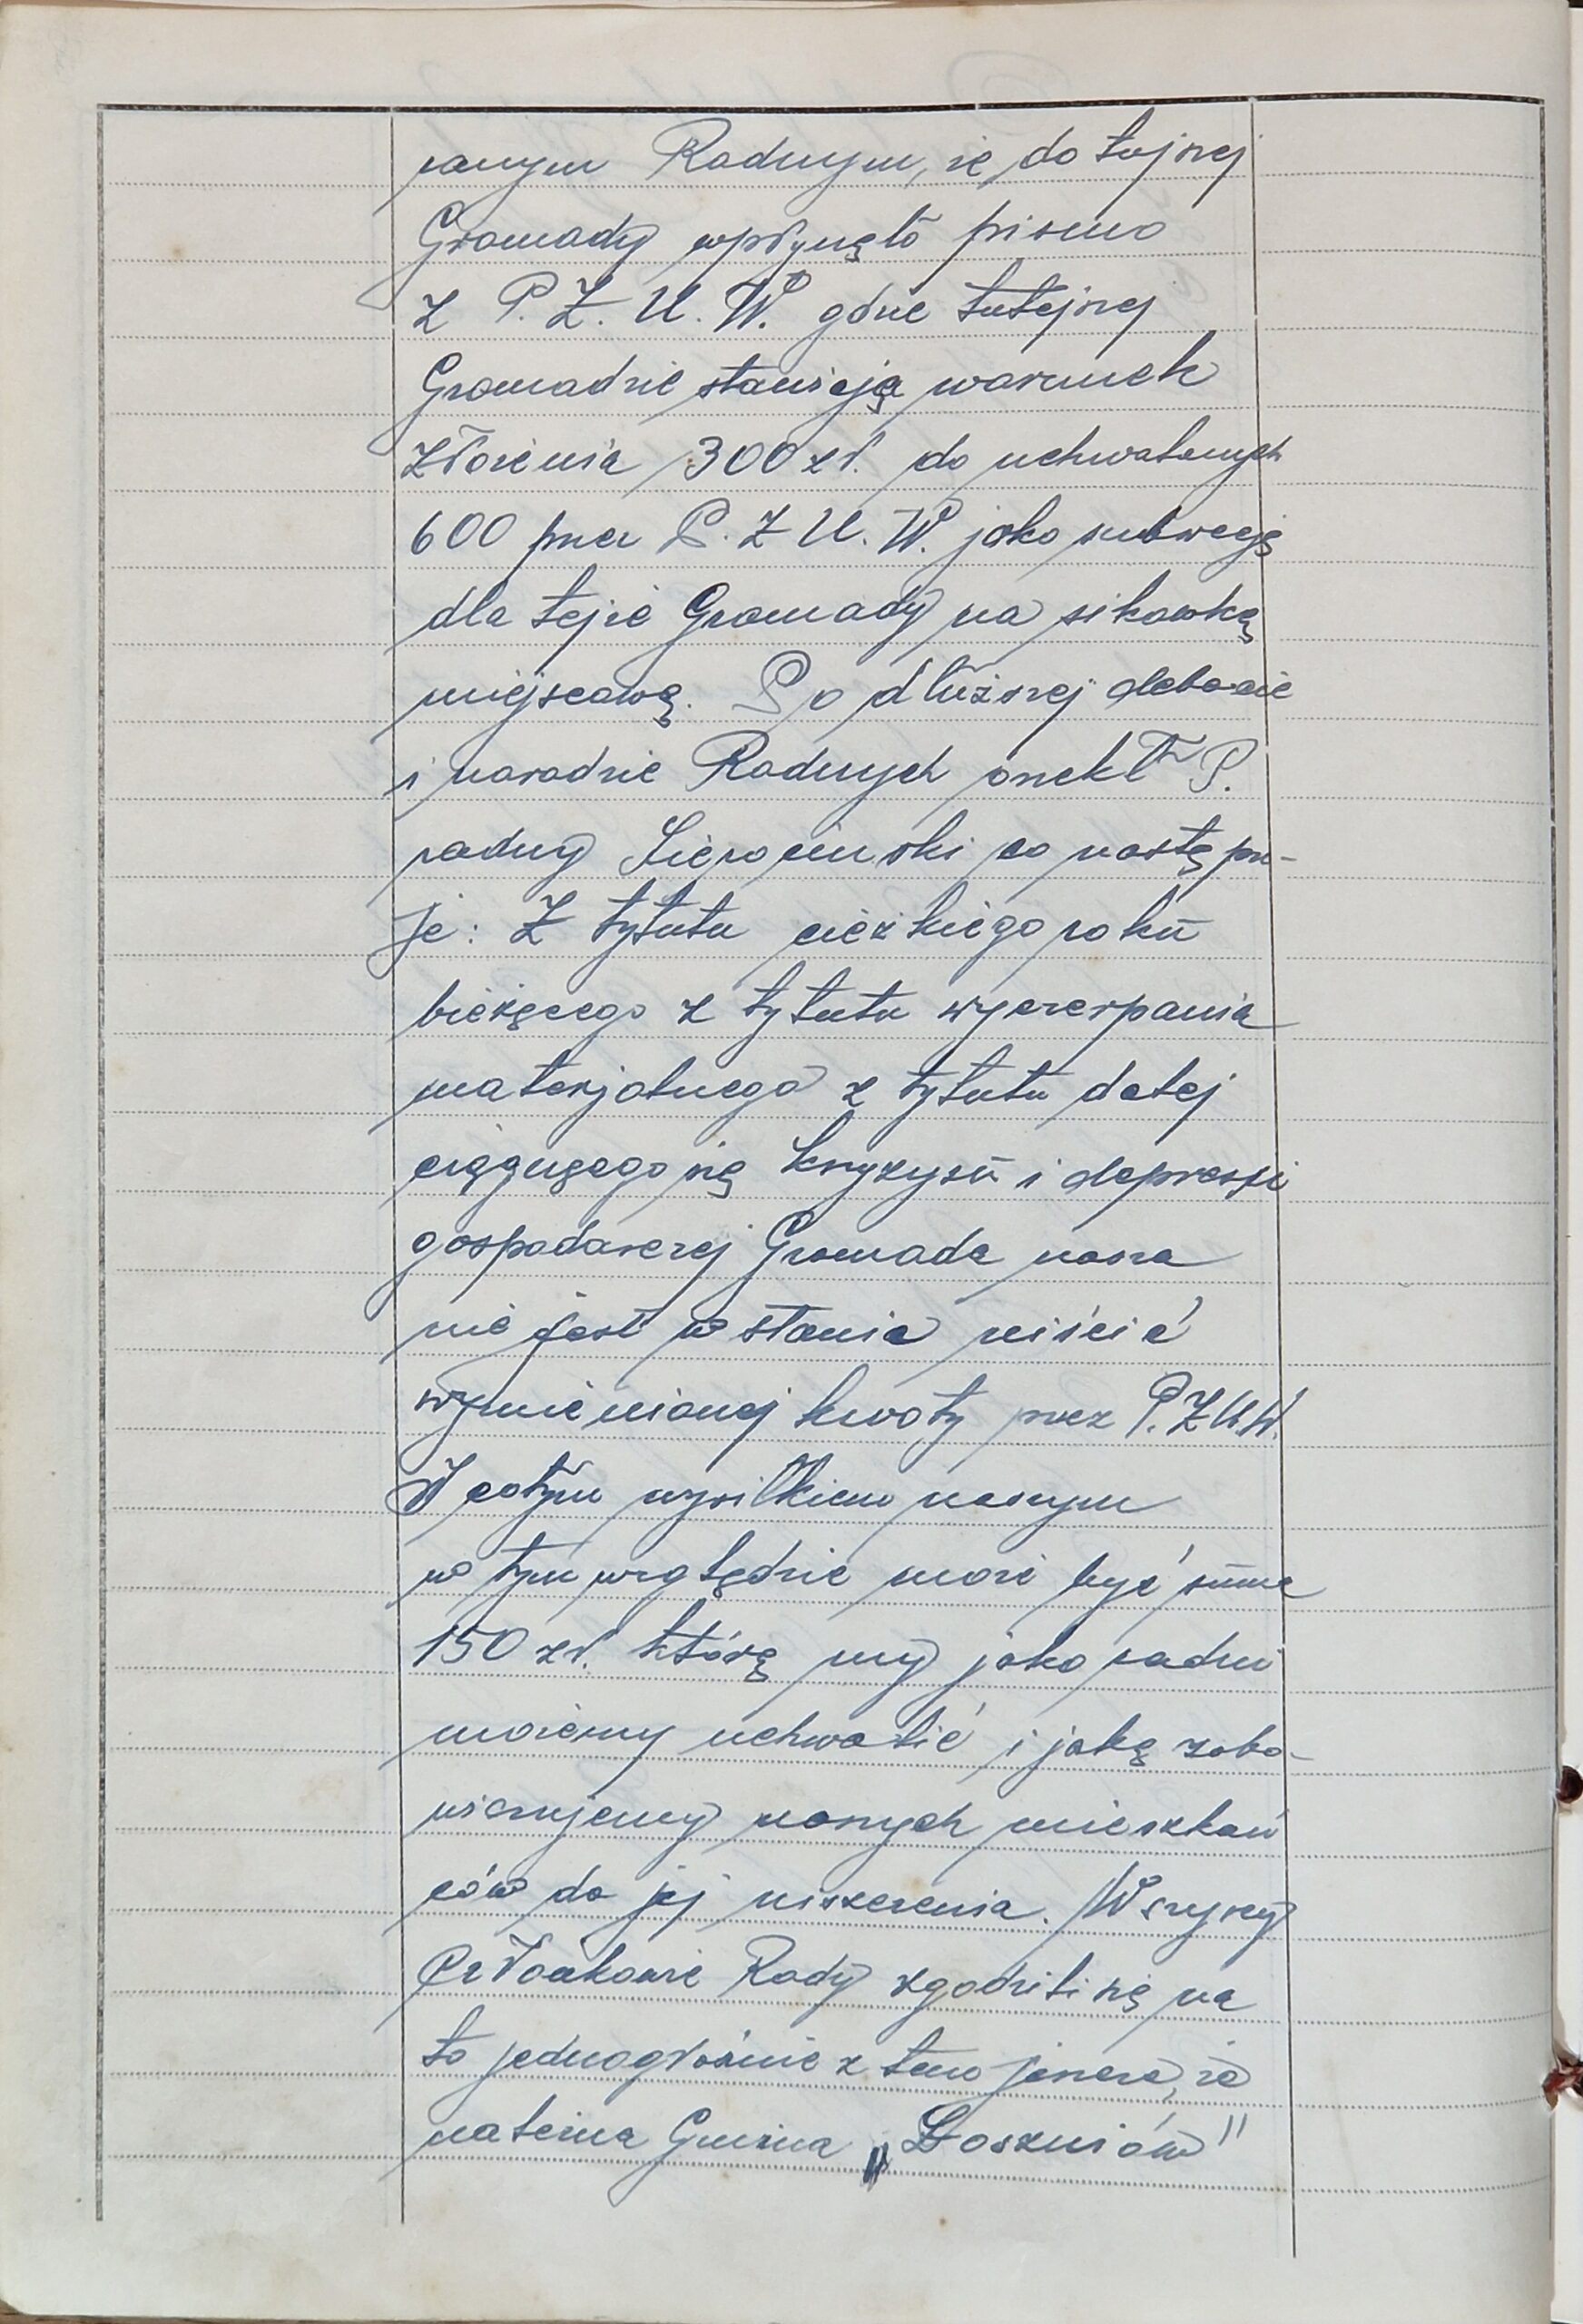 ranym Radnym, że do tujszej
Gromady wpłynęło pismo
z P. Z. U. W. gdzie tutejszej
Gromadzie stawiają warunek
złożenia 300 zł. do uchwalonych
600 przez P. Z U. W. jako subwecję
dla tejże Gromady na sikawkę
miejscową. Po dłuższej debacie
i naradzie Radnych rzekł P.
radny Sierociński co nastę pu-
je: Z tytułu ciężkiego roku
bieżącego z tytułu wyczerpania
materjalnego z tytułu dalej
ciągnącego się kryzysu i depresji
gospodarczej Gromada nasza
nie jest w stanie uiścić
wymienionej kwoty przez P. Z U.W.
I całym wysiłkiem naszym
w tym względzie może być suma
150 zł. którą my jako radni
możemy uchwalić i jaką zobo-
wiązujemy naszych mieszkań
ców do jej uiszczenia. Wszyscy
Członkowie Rady zgodzili się na
to jednogłośnie z tem jeszcze, że
należna Gmina „Łoszniów"